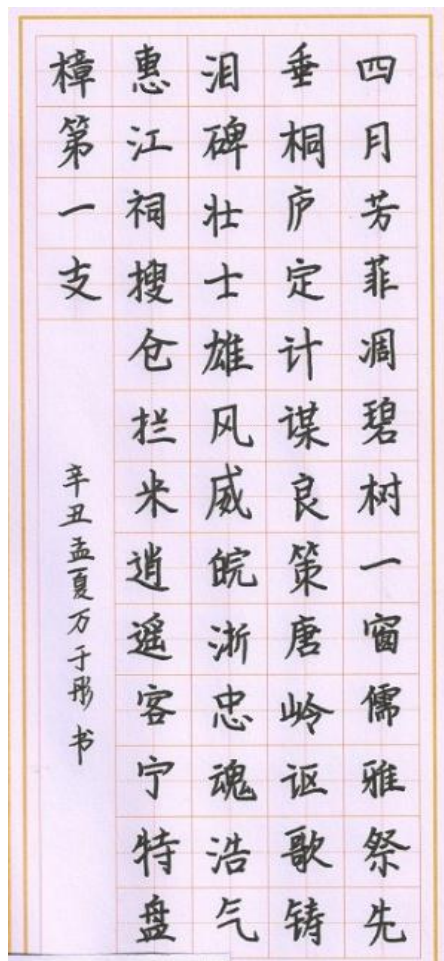 四月芳菲凋碧树一窗儒雅祭先
垂桐庐定计谋良策唐岭讴歌铸
泪碑壮士雄风威皖浙忠魂浩气
惠江祠搜仓拦米逍遥客宁特盘
樟第一支
辛丑孟夏万于彤书